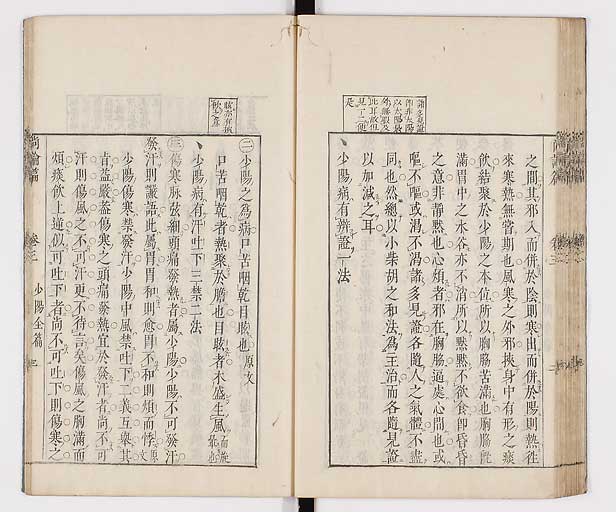 之間其邪入而併於陰則寒出而併於陽則熱往
來寒熱無常期也風寒之外邪挾身中有形之痰
飲結聚於少陽之本位所以胸脇苦滿也胸脇既
滿胃中之水谷亦不消所以黙黙不欲食卽昏昏
之意非靜黙也心煩者邪在胸脇逼處心間也或
嘔不嘔或渴不渴諸多見證各隨人之氣體不盡
同也然總以小柴胡之和法為主治而各隨見證
以加減之耳
少陽病有辨證一法
尚論篇
卷三
少陽全篇
㊁少陽之為病口苦咽乾目眩也原文
口苦咽乾者熱聚於膽也目眩者木盛生風而旋
少陽病有汗吐下三禁二法
㊂傷寒脉弦細頭痛發熱者屬少陽少陽不可發汗
發汗則讝語此屬胃胃和則愈胃不和則煩而悸原文
少陽傷寒禁發汗少陽中風禁吐下二義互舉其
旨益嚴蓋傷寒之頭痛發熱宜於發汗者尚不可
汗則傷風之不可汗更不待言矣傷風之胸滿而
煩痰飲上逆似可吐下者尚不可吐下則傷寒之